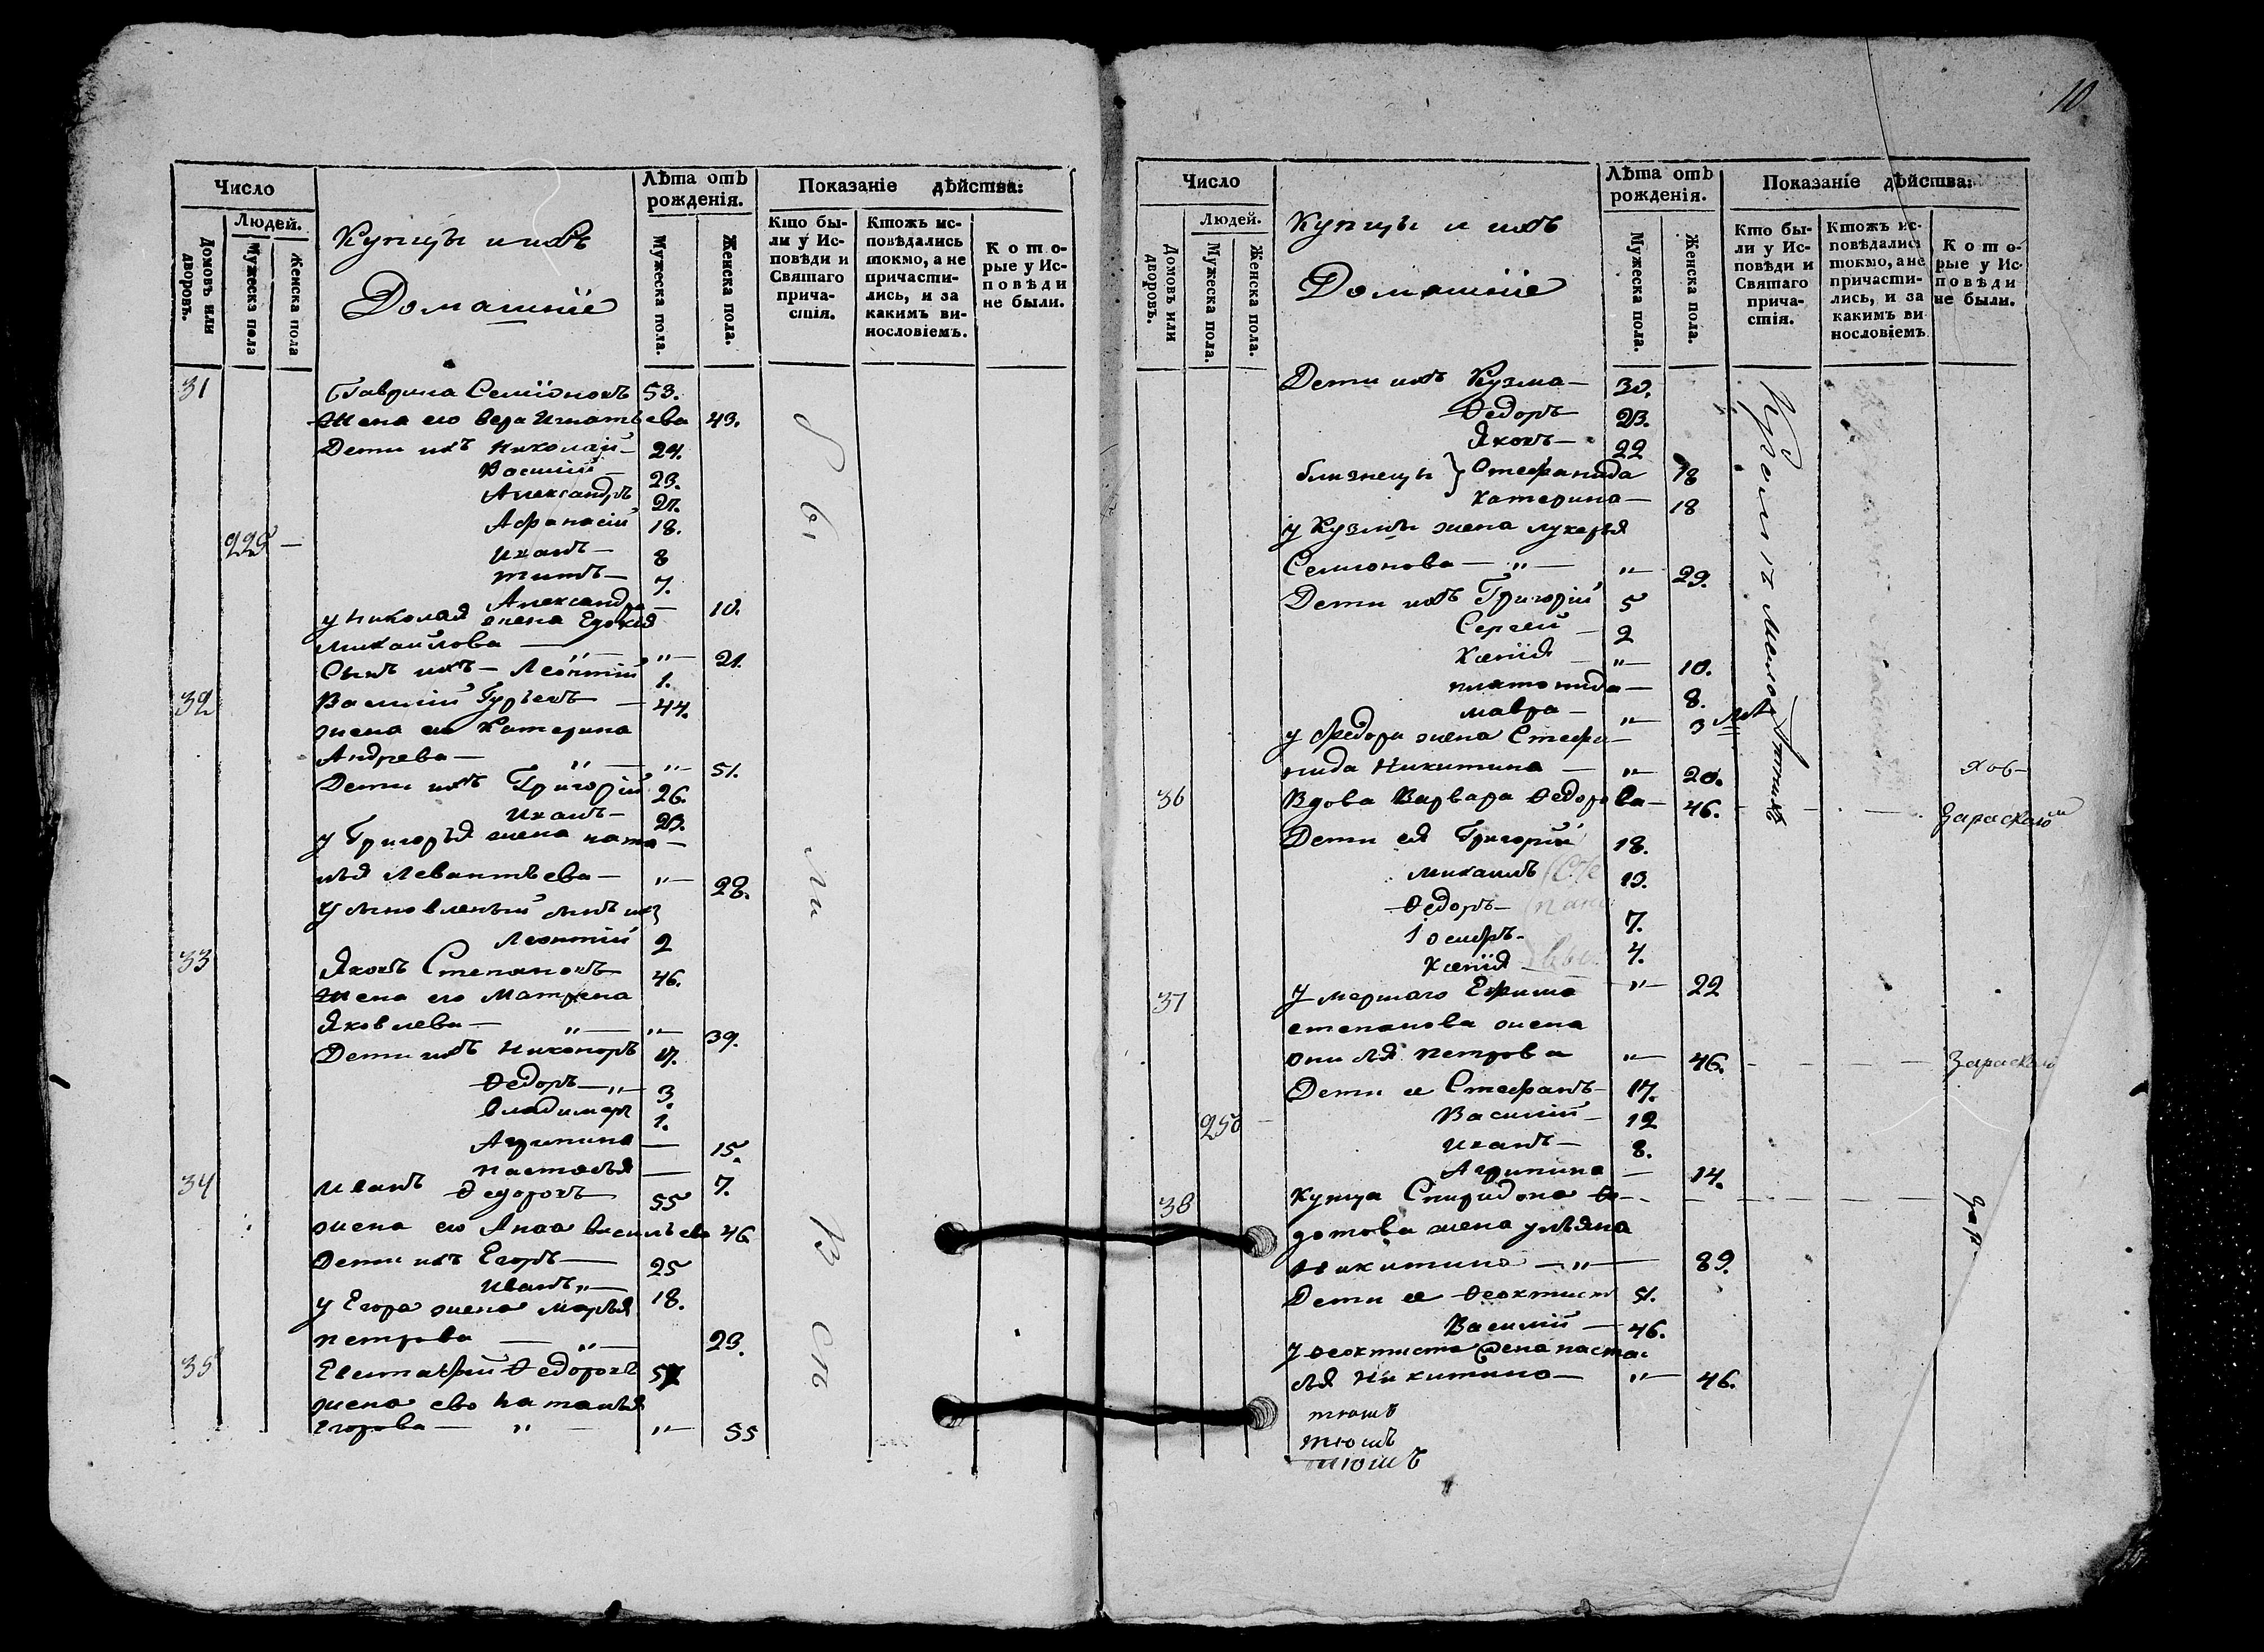 Число
Людей.
Домовъ или дворовъ.
Мужеска пола
Женска пола
Купцы и ихъ
Домашніе
Лѣта отъ рожденія.
Мужеска пола.
Женска пола.
Показаніе дѣйства:
Кто бы-
ли у Ис-
повѣди и
Святаго
прича-
стія.
Ктожъ ис-
повѣдались
токмо, а не
причасти-
лись, и за
какимъ ви-
нословіемъ.
Кото-
рые у Ис-
повѣди
не были.
31 Гаврила Семіоновъ 53.
Жена его вера Игнатьева 43.
Дети ихъ Николай — 24.
Василій — 23.
Александръ 21.
Афанасій 18.
225 — Иванъ — 8
титъ — 7.
Александра — 10.
у Николая жена Едокія
михаилова — " — " — 21.
Сынъ ихъ — Леонтій 1.
32 Василий Гурьевъ — 44.
жена его Катерина
Андрева — " — " — 51.
Дети ихъ Григорій 26.
Иванъ — 23.
у Григорья жена ната —
лья Левантьева — " — 28.
Усыновленый сынъ их
Леонтій 2
33 Яковъ Степановъ 46.
Жена его Матрена
Яковлева — " — " — 39.
Дети ихъ Никоноръ 17.
Ѳедоръ — " — 3.
владимеръ 1.
Агрипина — 15.
настасья — 7.
34 Иванъ Ѳедоровъ 55
жена его Анна васильева 46
дети ихъ Егоръ — 25
Иванъ " — 18.
у Егора жена марья
петрова — " — 23.
35 Евстафий Ѳедоровъ 57
жена ево наталья
Егорова — " — " — 55
бы
ли
Всѣ
10
Число
Людей.
Домовъ или дворовъ.
Мужеска пола.
Женска пола.
Купцы и ихъ
Домашніе
Лѣта отъ рожденія.
Мужеска пола.
Женска пола.
Показаніе дѣйства:
Кто бы-
ли у Ис-
повѣди и
Святаго
прича-
стія.
Ктожъ ис-
повѣдались
токмо, а не
причасти-
лись, и за
какимъ ви-
нословіемъ.
Кото-
рые у Ис-
повѣди
не были.
Дети ихъ Кузма — 30.
Ѳедоръ 23.
Яковъ — 22
близнецы } Стефанида 18
Катерина — 18
у Кузмы жена лукерья
Семионова — " — " — 29.
Дети ихъ Григорій 5
Сергей — 2
Ксенія — " — 10.
платонида — 8.
мавра — " — 3
у Федора жена Стефа —
нида Никитина — " — 20.
36 Вдова Варвара Ѳедорова — 46.
Дети ея Григорий 18.
михаилъ 13.
Ѳедоръ — 7.
Іосифъ — 4.
Ксенія — " — 22
37 Умершаго Ефима
степанова жена
онисья петрова " — 46.
Дети ее Стефанъ — 17.
250 — Василій — 12
Иванъ — 8.
Агрипина — 14.
38 Купца Спиридона Ѳе —
дотова жена ульяна
Никитина — " — 89.
Дети ее Ѳеоктистъ 51.
Василий — 46.
у Ѳеоктиста жена настас
ья Никитина — " — 46.
тюшъ
тюшъ
тюшъ